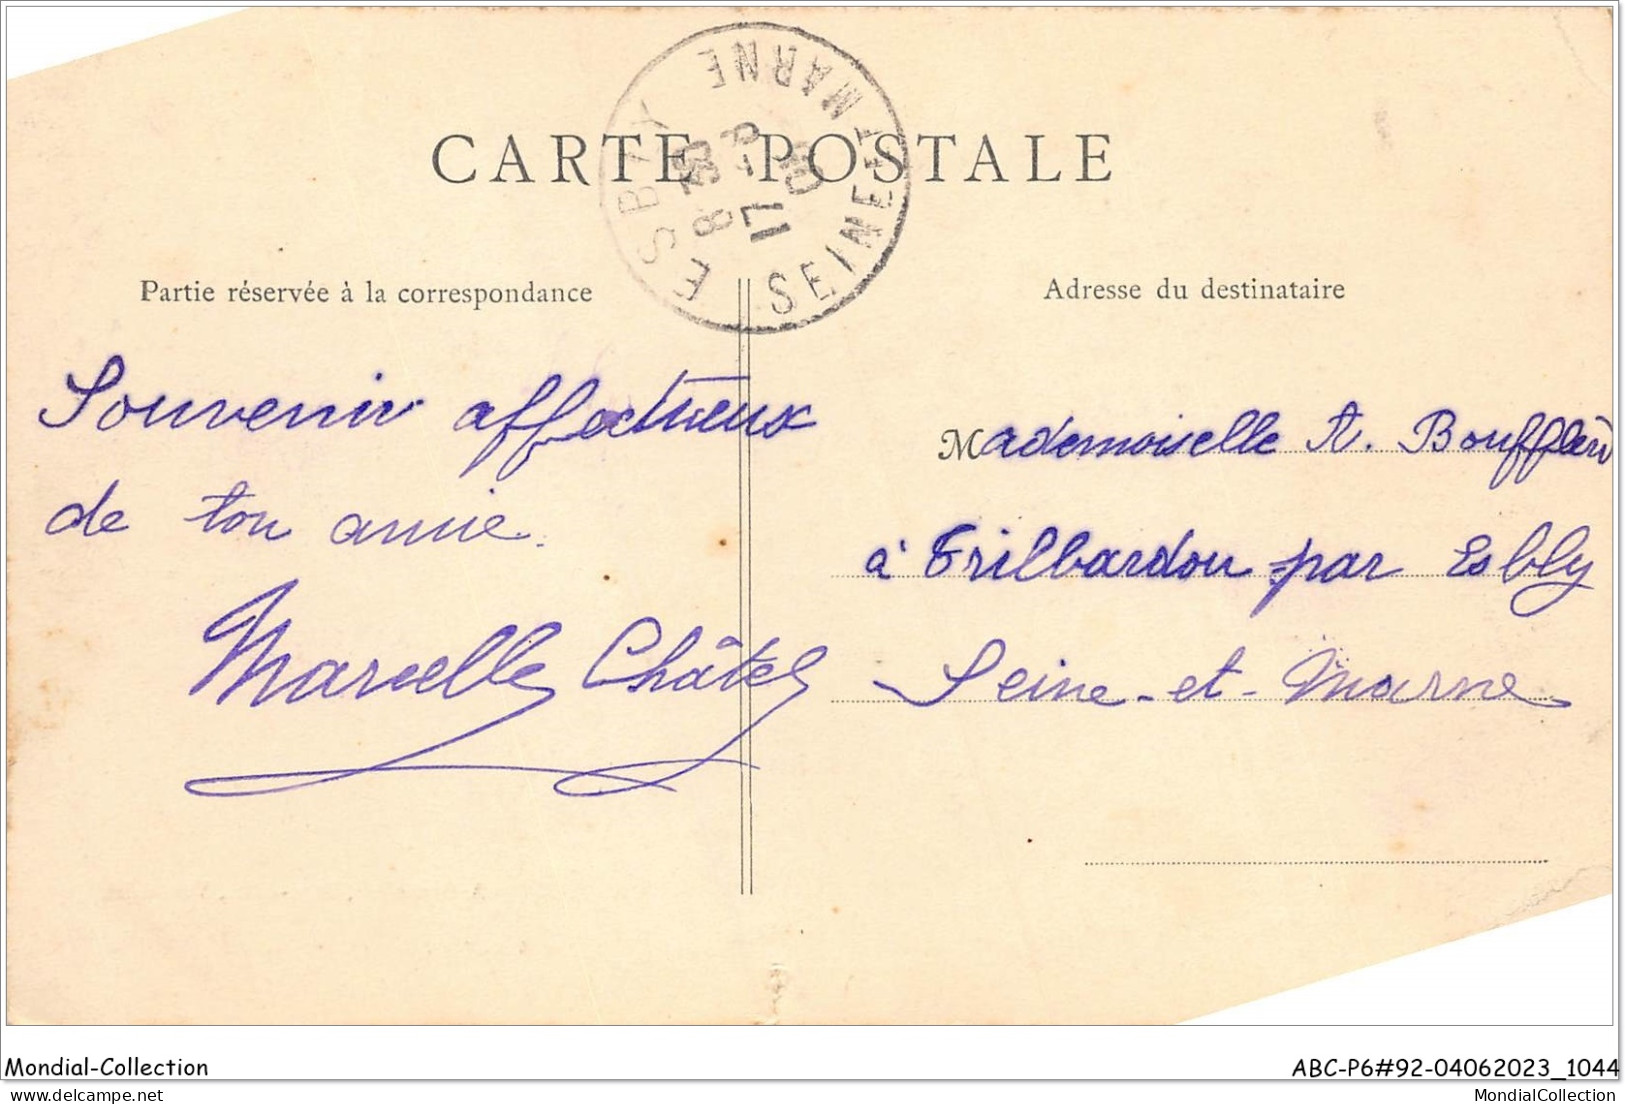 CARTE POSTALE
ESBLY
SEINE ET MARNE
8 30
17 - 8
10
Partie réservée à la correspondance
Adresse du destinataire
Souvenir affectueux
de ton amie.
Marcelle Châtel
Mademoiselle A.
à Trilbardou par Esbly
Seine-et-Marne
Mondial-Collection
ABC-P6#92-04062023_1044
MondialCollection